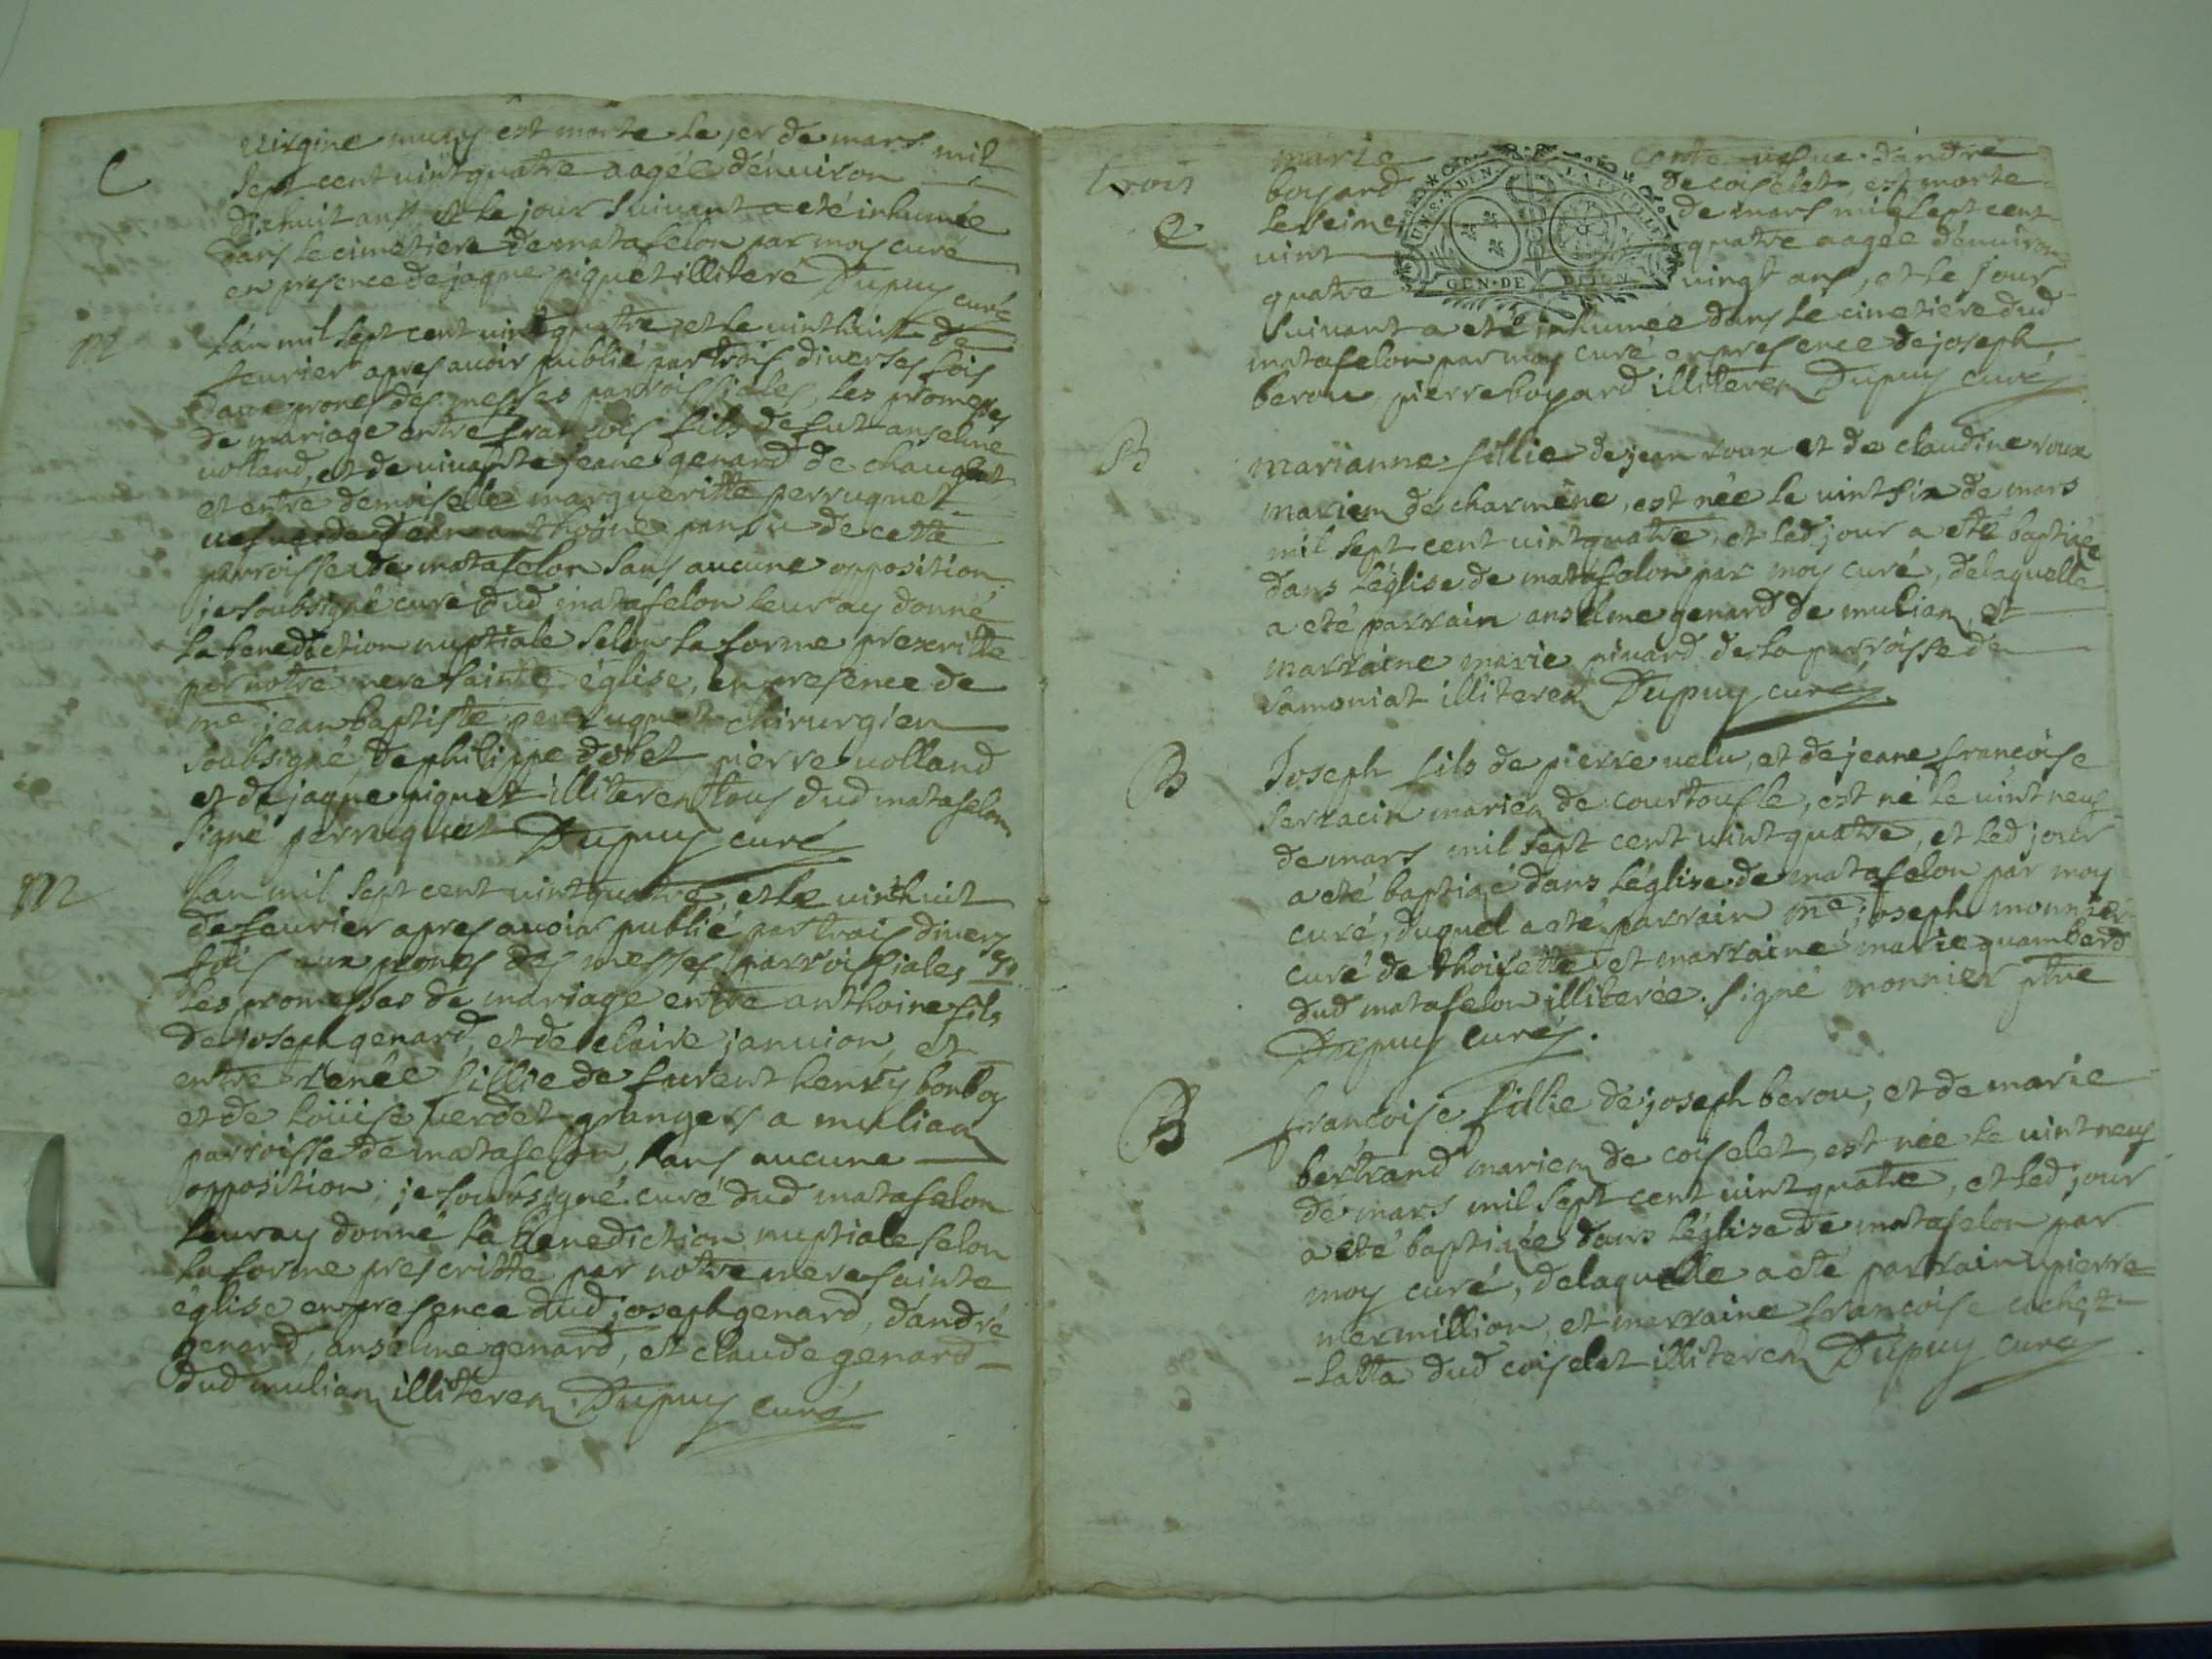 C
virgine muny est morte le jer de mars mil
sept cent vint quatre aagée d'énuiron
dixhuit ans et le jour suiuant a eté inhumée
dans le cimetiere de matafelon par moy curé
en presence de jaque piquet illiteré Dupuy curé
M
l'an mil sept cent vint quatre, et le vinthuit de
feurier apres auoir publié par trois diuerses fois
aux prones des messes parroissiales, les promesses
de mariage entre françois fils de fut anselme
uolland, et de uiuante jeane genard de chauglat
et entre demoiselle margueritte perruquet
uefue de anthoine pansu de cette
parroisse de matafelon sans aucune opposition
je soubsigné curé dud matafelon leur ay donné
la benediction nuptiale selon la forme prexcritte
par notre mere sainte église, en presence de
me jean baptiste perruquet chirurgien
soubsigné, de philippe dobet pierre uolland
et de jaque piquet illiteren tous dud matafelon
signé perruquet Dupuy curé
M
l'an mil sept cent vint quatre, et le vinthuit
de feurier apres auoir publié par trois diuers
fois aux prones des messes parroissiales
les promesses de mariage entre anthoine fils
de joseph genard, et de claire januion, et
entre renée fillie de furent henry bonboy
et de loüise uerdet grangers a mulian
parroisse de matafelon, sans aucune
opposition, je soubsigné curé dud matafelon
leur ay donné la benediction nuptiale selon
la forme prescritte par notre mere sainte
église en presence dud joseph genard, d'andré
genard, anselme genard, et claude genard
dud mulian illiteren Dupuy curé
trois
C
marie conte uefue d'andré
boyard de coiselet, est morte
le seine de mars mil sept cent
vint quatre aagée d'énuiron
quatre vingt ans, et le jour
GEN · DE DIJON
suiuant a eté inhumée dans le cimetiere dud
matafelon par moy curé en presence de joseph
berou, pierre boyard illiteren Dupuy curé
B
marianne fillie de jean roux et de claudine roux
marien de charmêne, est née le vint six de mars
mil sept cent vint quatre, et led jour a eté baptizée
dans l'église de matafelon par moy curé, de laquelle
a eté parrain anselme genard de mulian, et
marraine marie piuard de la parroisse de
samoniat illiteren Dupuy curé
B
Joseph fils de pierre uelu, et de jeane françoise
serracin marien de courtoufle, est né le vint neuf
de mars mil sept cent vint quatre, et led jour
a eté baptizé dans l'église de matafelon par moy
curé, duquel a eté parrain me joseph monnier
curé de thoisette et marraine marie quambard
dud matafelon illiterée. signé monnier ptre
Dupuy curé.
B
françoise fillie de joseph berou, et de marie
bertrand marien de coiselet, est née le vint neuf
de mars mil sept cent vint quatre, et led jour
a eté baptizée dans l'église de matafelon par
moy curé, de laquelle a eté parrain pierre
mermillion, et marraine françoise cochet
latta dud coiselet illiteren Dupuy curé